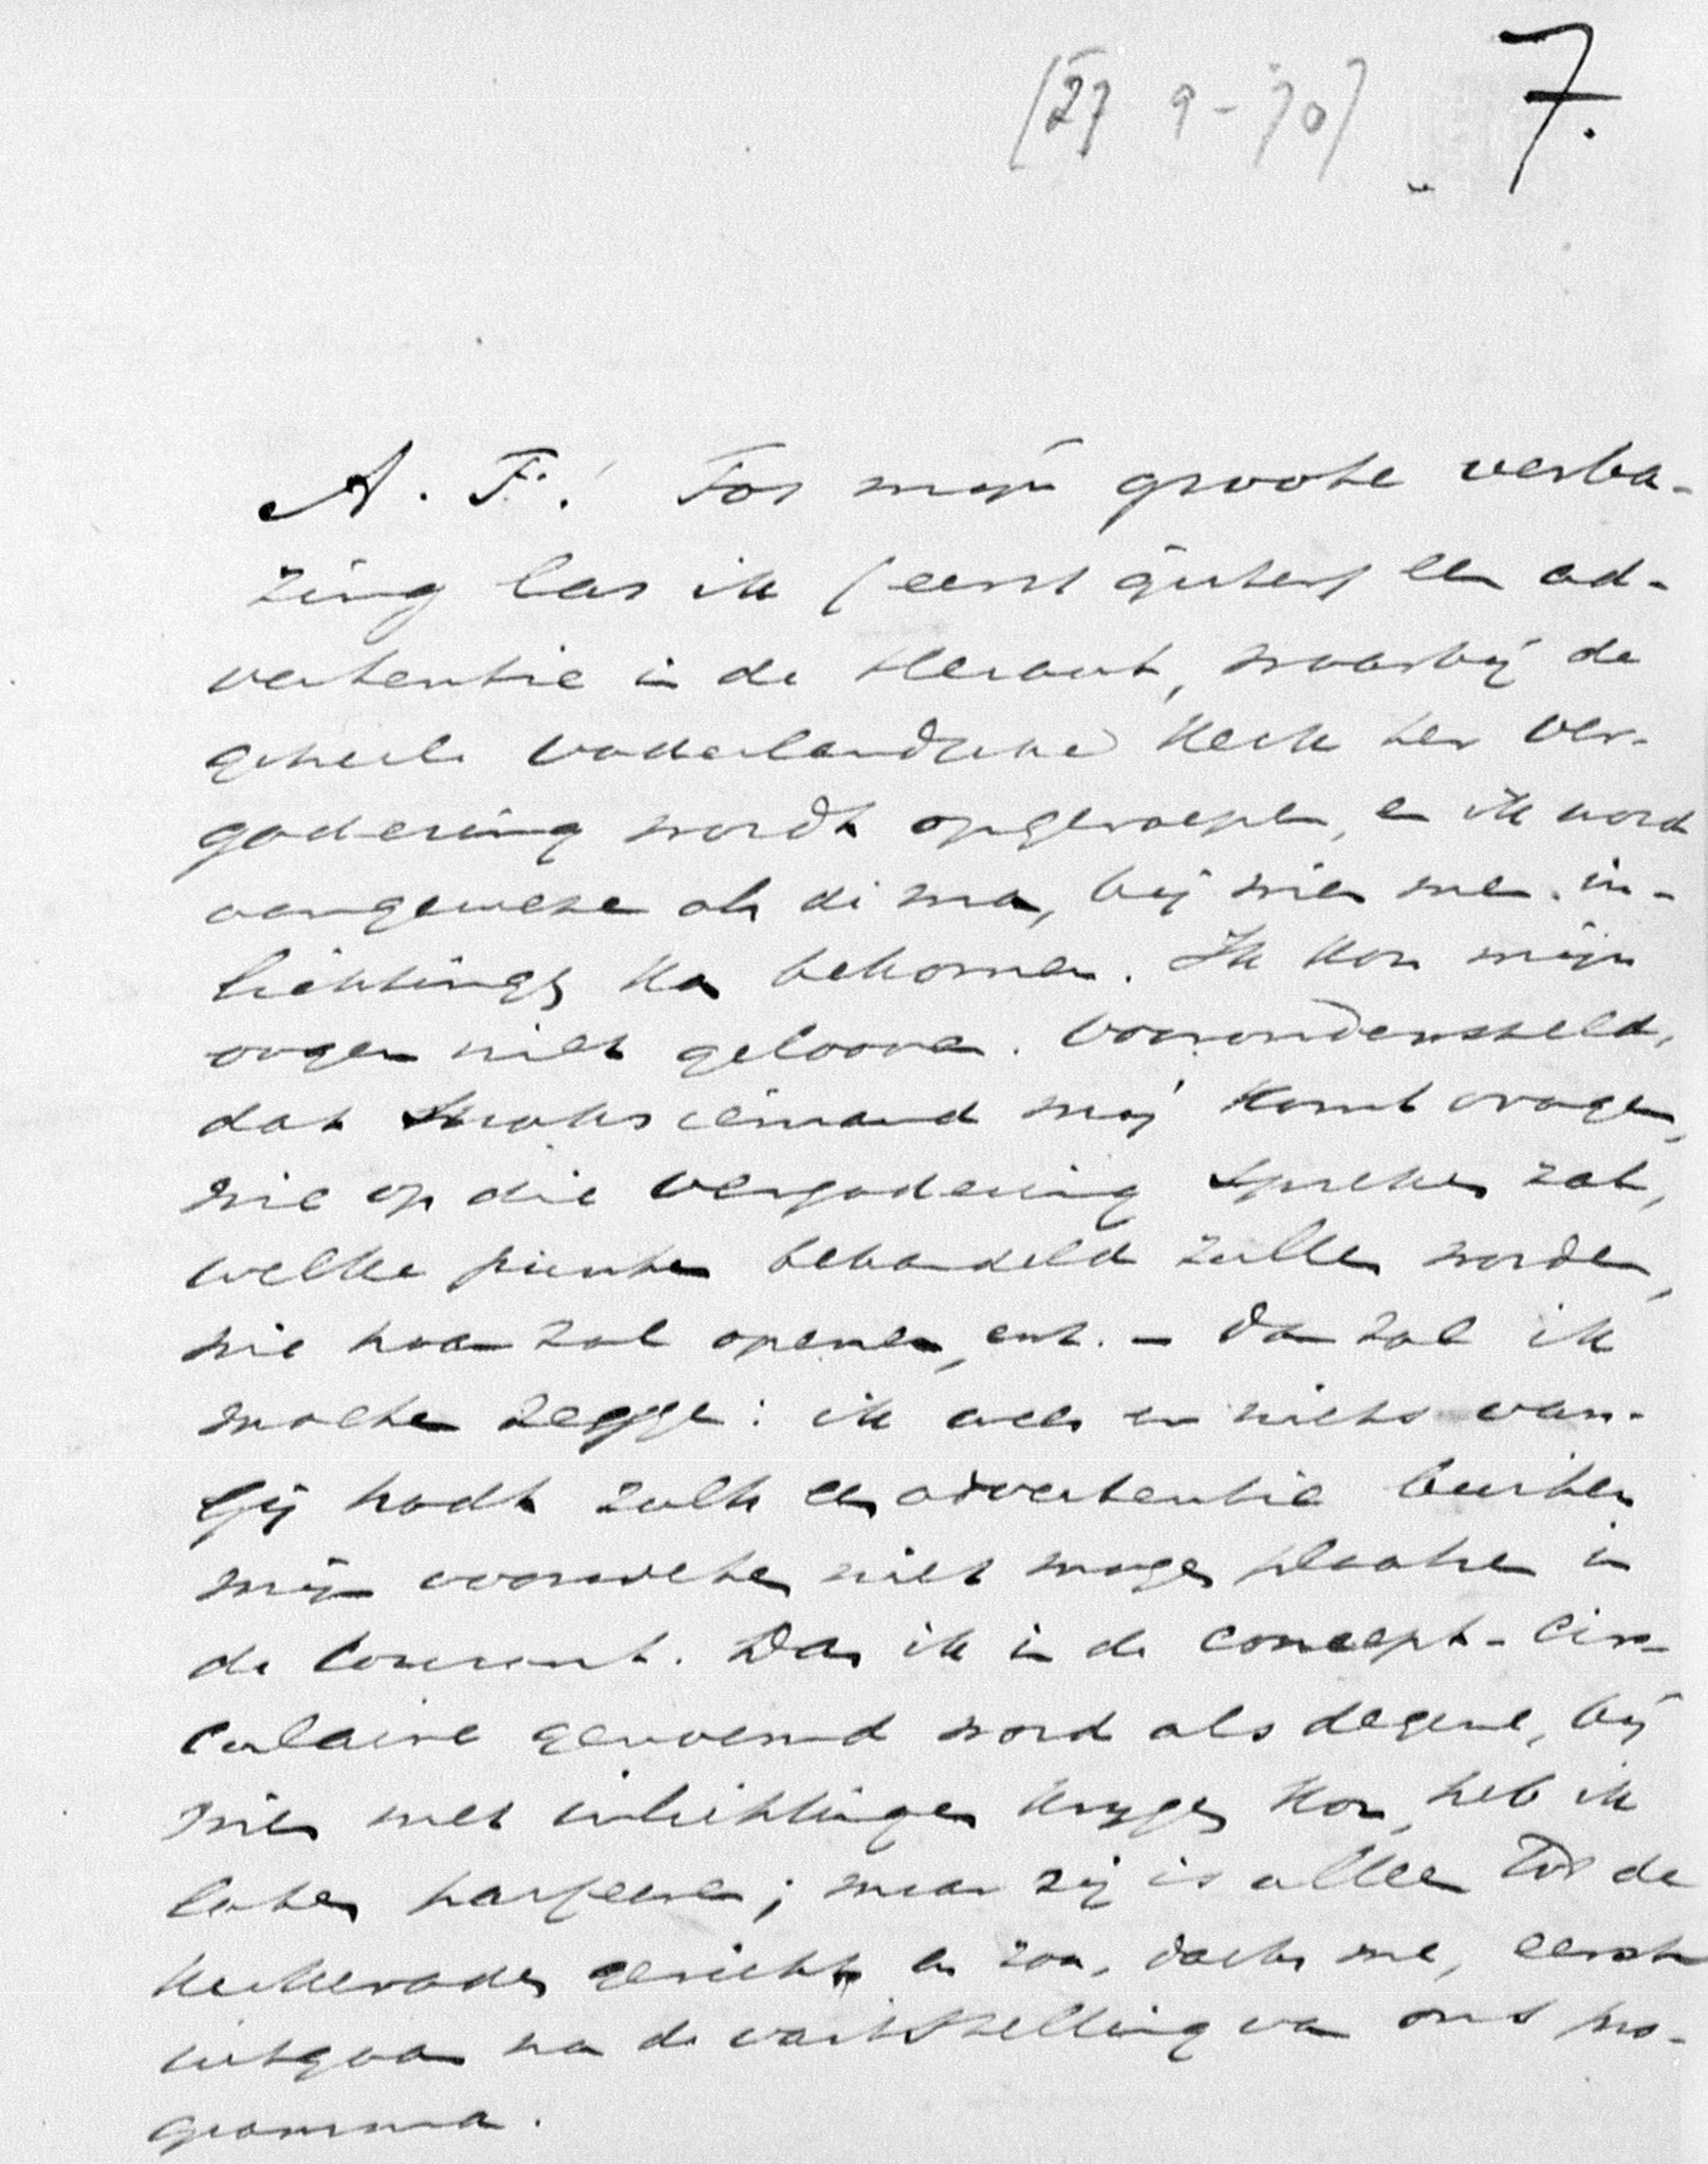 [27 9-70] 7.
A. F.! Tot mijn groote verba-
zing las ik (eerst gisteren) een ad-
vertentie in de Heraut, waarbij de
geheele vaderlandsche Kerk ter ver-
gadering wordt opgeroepen, en ik word
aangewezen als de man, bij wien men in-
lichtingen kan bekomen. Ik kon mijn
oogen niet gelooven. Voorondersteld,
dat straks iemand mij komt vragen,
wie op die vergadering spreken zal,
welke punten behandeld zullen worden,
wie haar zal openen, enz. – dan zal ik
moeten zeggen: ik weet er niets van.
Gij hadt zulk een advertentie buiten
mijn voorweten niet mogen plaatsen in
de Courant. Dat ik in de concept-Cir-
culaire genoemd word als degene, bij
wien men inlichtingen krijgen kon, heb ik
laten passeeren; maar zij is alleen tot de
Kerkeraden gericht en zou, dacht me, eerst
uitgaan na de vaststelling van ons pro-
gramma.